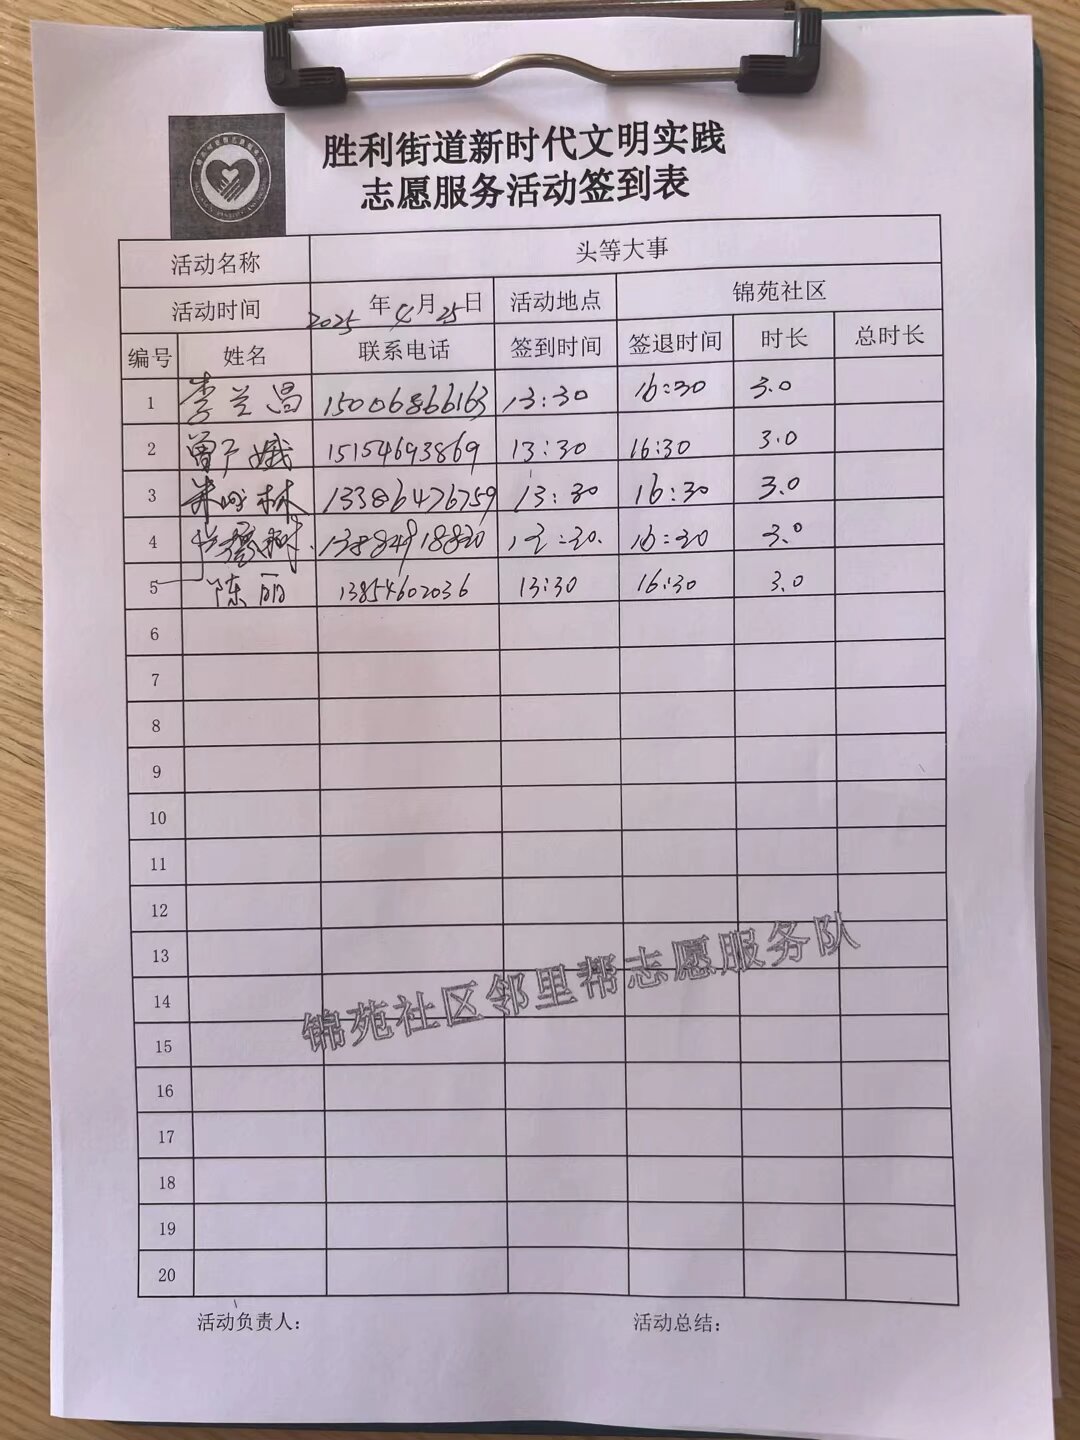 胜利街道新时代文明实践
志愿服务活动签到表
活动名称 头等大事
活动时间 2025年4月25日 活动地点 锦苑社区
编号 姓名 联系电话 签到时间 签退时间 时长 总时长
1 李兰昌 15006866163 13:30 16:30 3.0
2 曾广娥 15154693869 13:30 16:30 3.0
3 林 13386476759 13:30 16:30 3.0
4 树 13884918820 13:30 16:30 3.0
5 陈丽 13854602036 13:30 16:30 3.0
6
7
8
9
10
11
12
13
14
15
16
17
18
19
20
锦苑社区邻里帮志愿服务队
活动负责人: 活动总结: